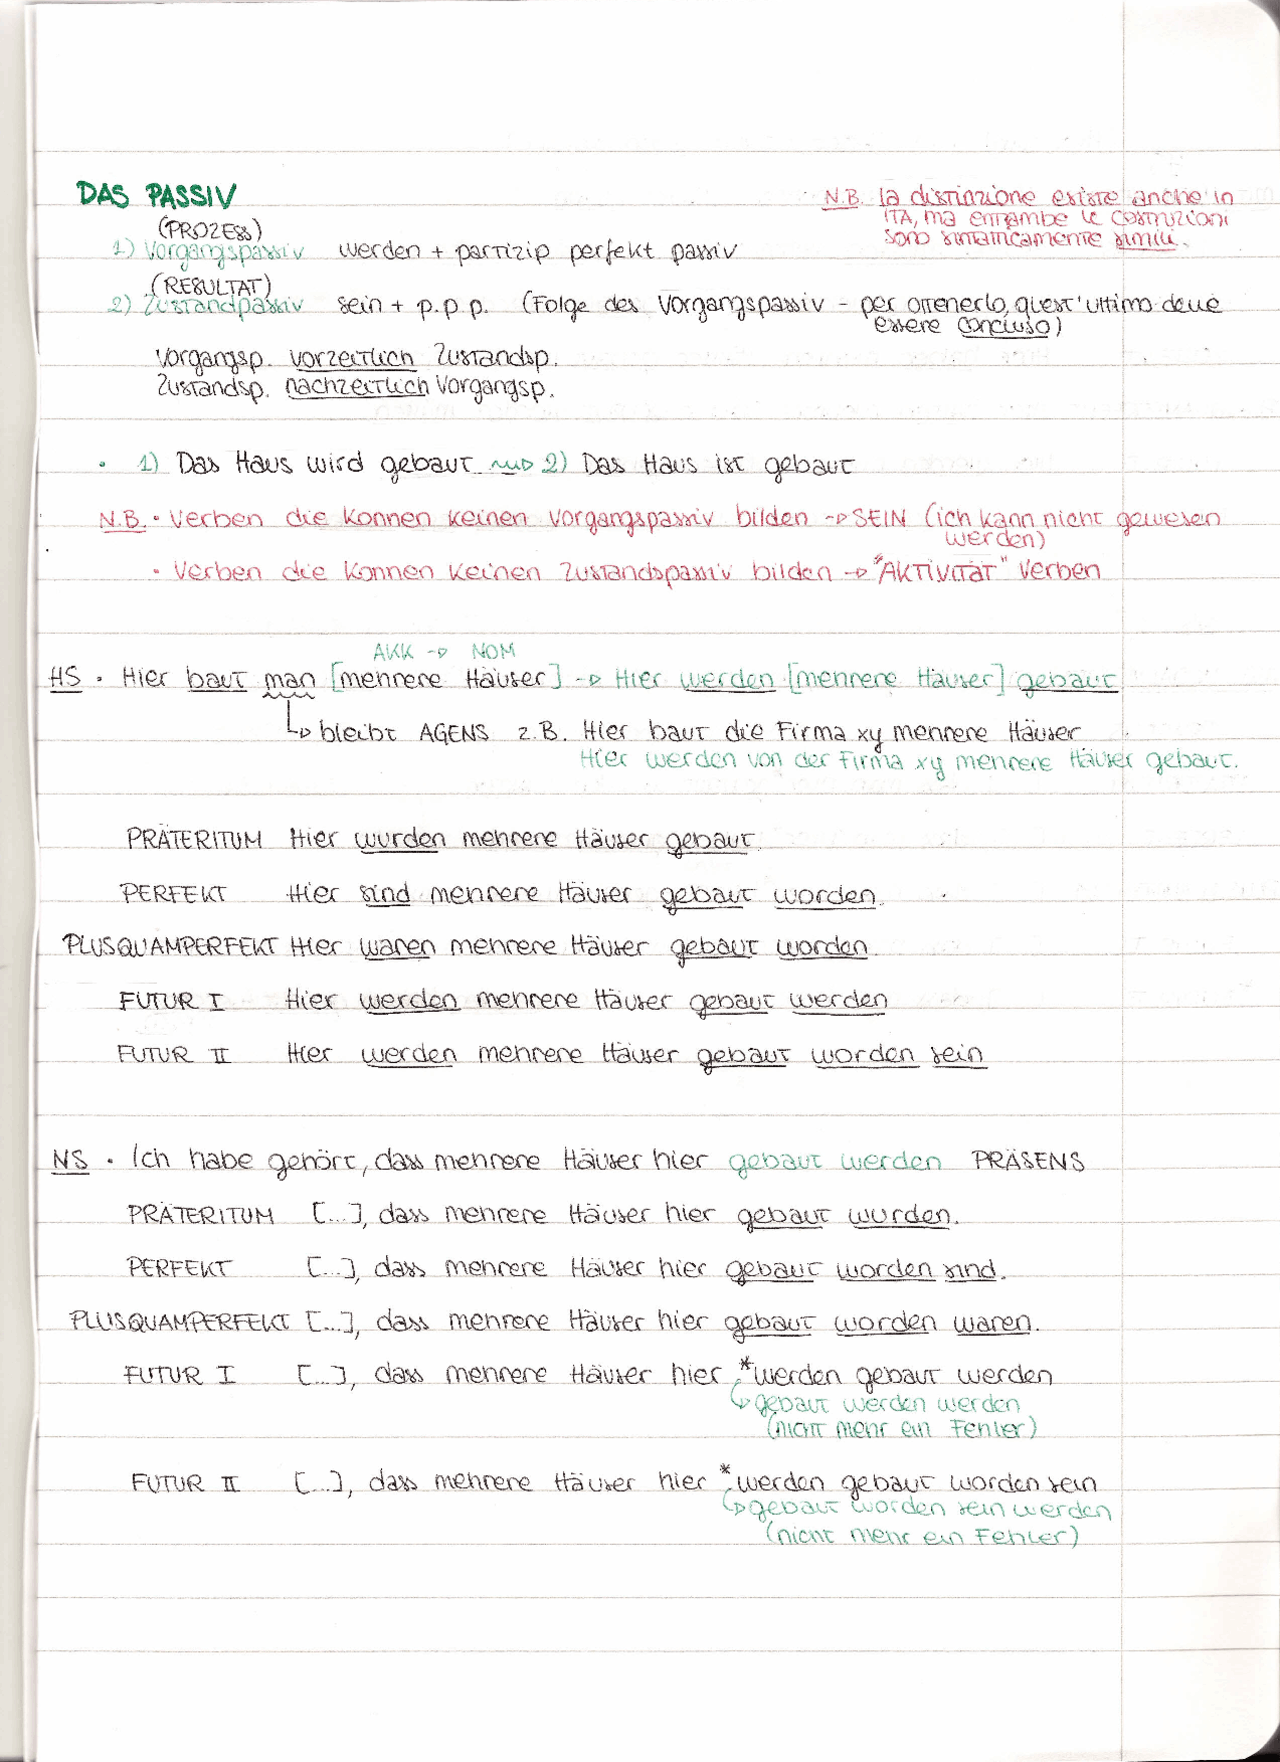 DAS PASSIV
N.B. la distinzione esiste anche in
ITA, ma entrambe le costruzioni
sono sintatticamente simili.
(PROZESS)
1) Vorgangspassiv werden + partizip perfekt passiv
(RESULTAT)
2) Zustandpassiv sein + p.p.p. (Folge des Vorgangspassiv - per ottenerlo, quest'ultimo deve
essere concluso)
Vorgangsp. vorzeitlich Zustandsp.
Zustandsp. nachzeitlich Vorgangsp.
• 1) Das Haus wird gebaut → 2) Das Haus ist gebaut
N.B. • Verben die konnen keinen Vorgangspassiv bilden → SEIN (ich kann nicht gewesen
werden)
• Verben die konnen keinen Zustandspassiv bilden → "AKTIVITÄT" Verben
AKK → NOM
HS • Hier baut man [mehrere Häuser] → Hier werden [mehrere Häuser] gebaut
↳ bleibt AGENS z.B. Hier baut die Firma xy mehrere Häuser
Hier werden von der Firma xy mehrere Häuser gebaut.
PRÄTERITUM Hier wurden mehrere Häuser gebaut.
PERFEKT Hier sind mehrere Häuser gebaut worden.
PLUSQUAMPERFEKT Hier waren mehrere Häuser gebaut worden.
FUTUR I Hier werden mehrere Häuser gebaut werden
FUTUR II Hier werden mehrere Häuser gebaut worden sein
NS • Ich habe gehört, dass mehrere Häuser hier gebaut werden PRÄSENS
PRÄTERITUM [...], dass mehrere Häuser hier gebaut wurden.
PERFEKT [...], dass mehrere Häuser hier gebaut worden sind.
PLUSQUAMPERFEKT [...], dass mehrere Häuser hier gebaut worden waren.
FUTUR I [...], dass mehrere Häuser hier *werden gebaut werden
↳ gebaut werden werden
(nicht mehr ein Fehler)
FUTUR II [...], dass mehrere Häuser hier *werden gebaut worden sein
↳ gebaut worden sein werden
(nicht mehr ein Fehler)